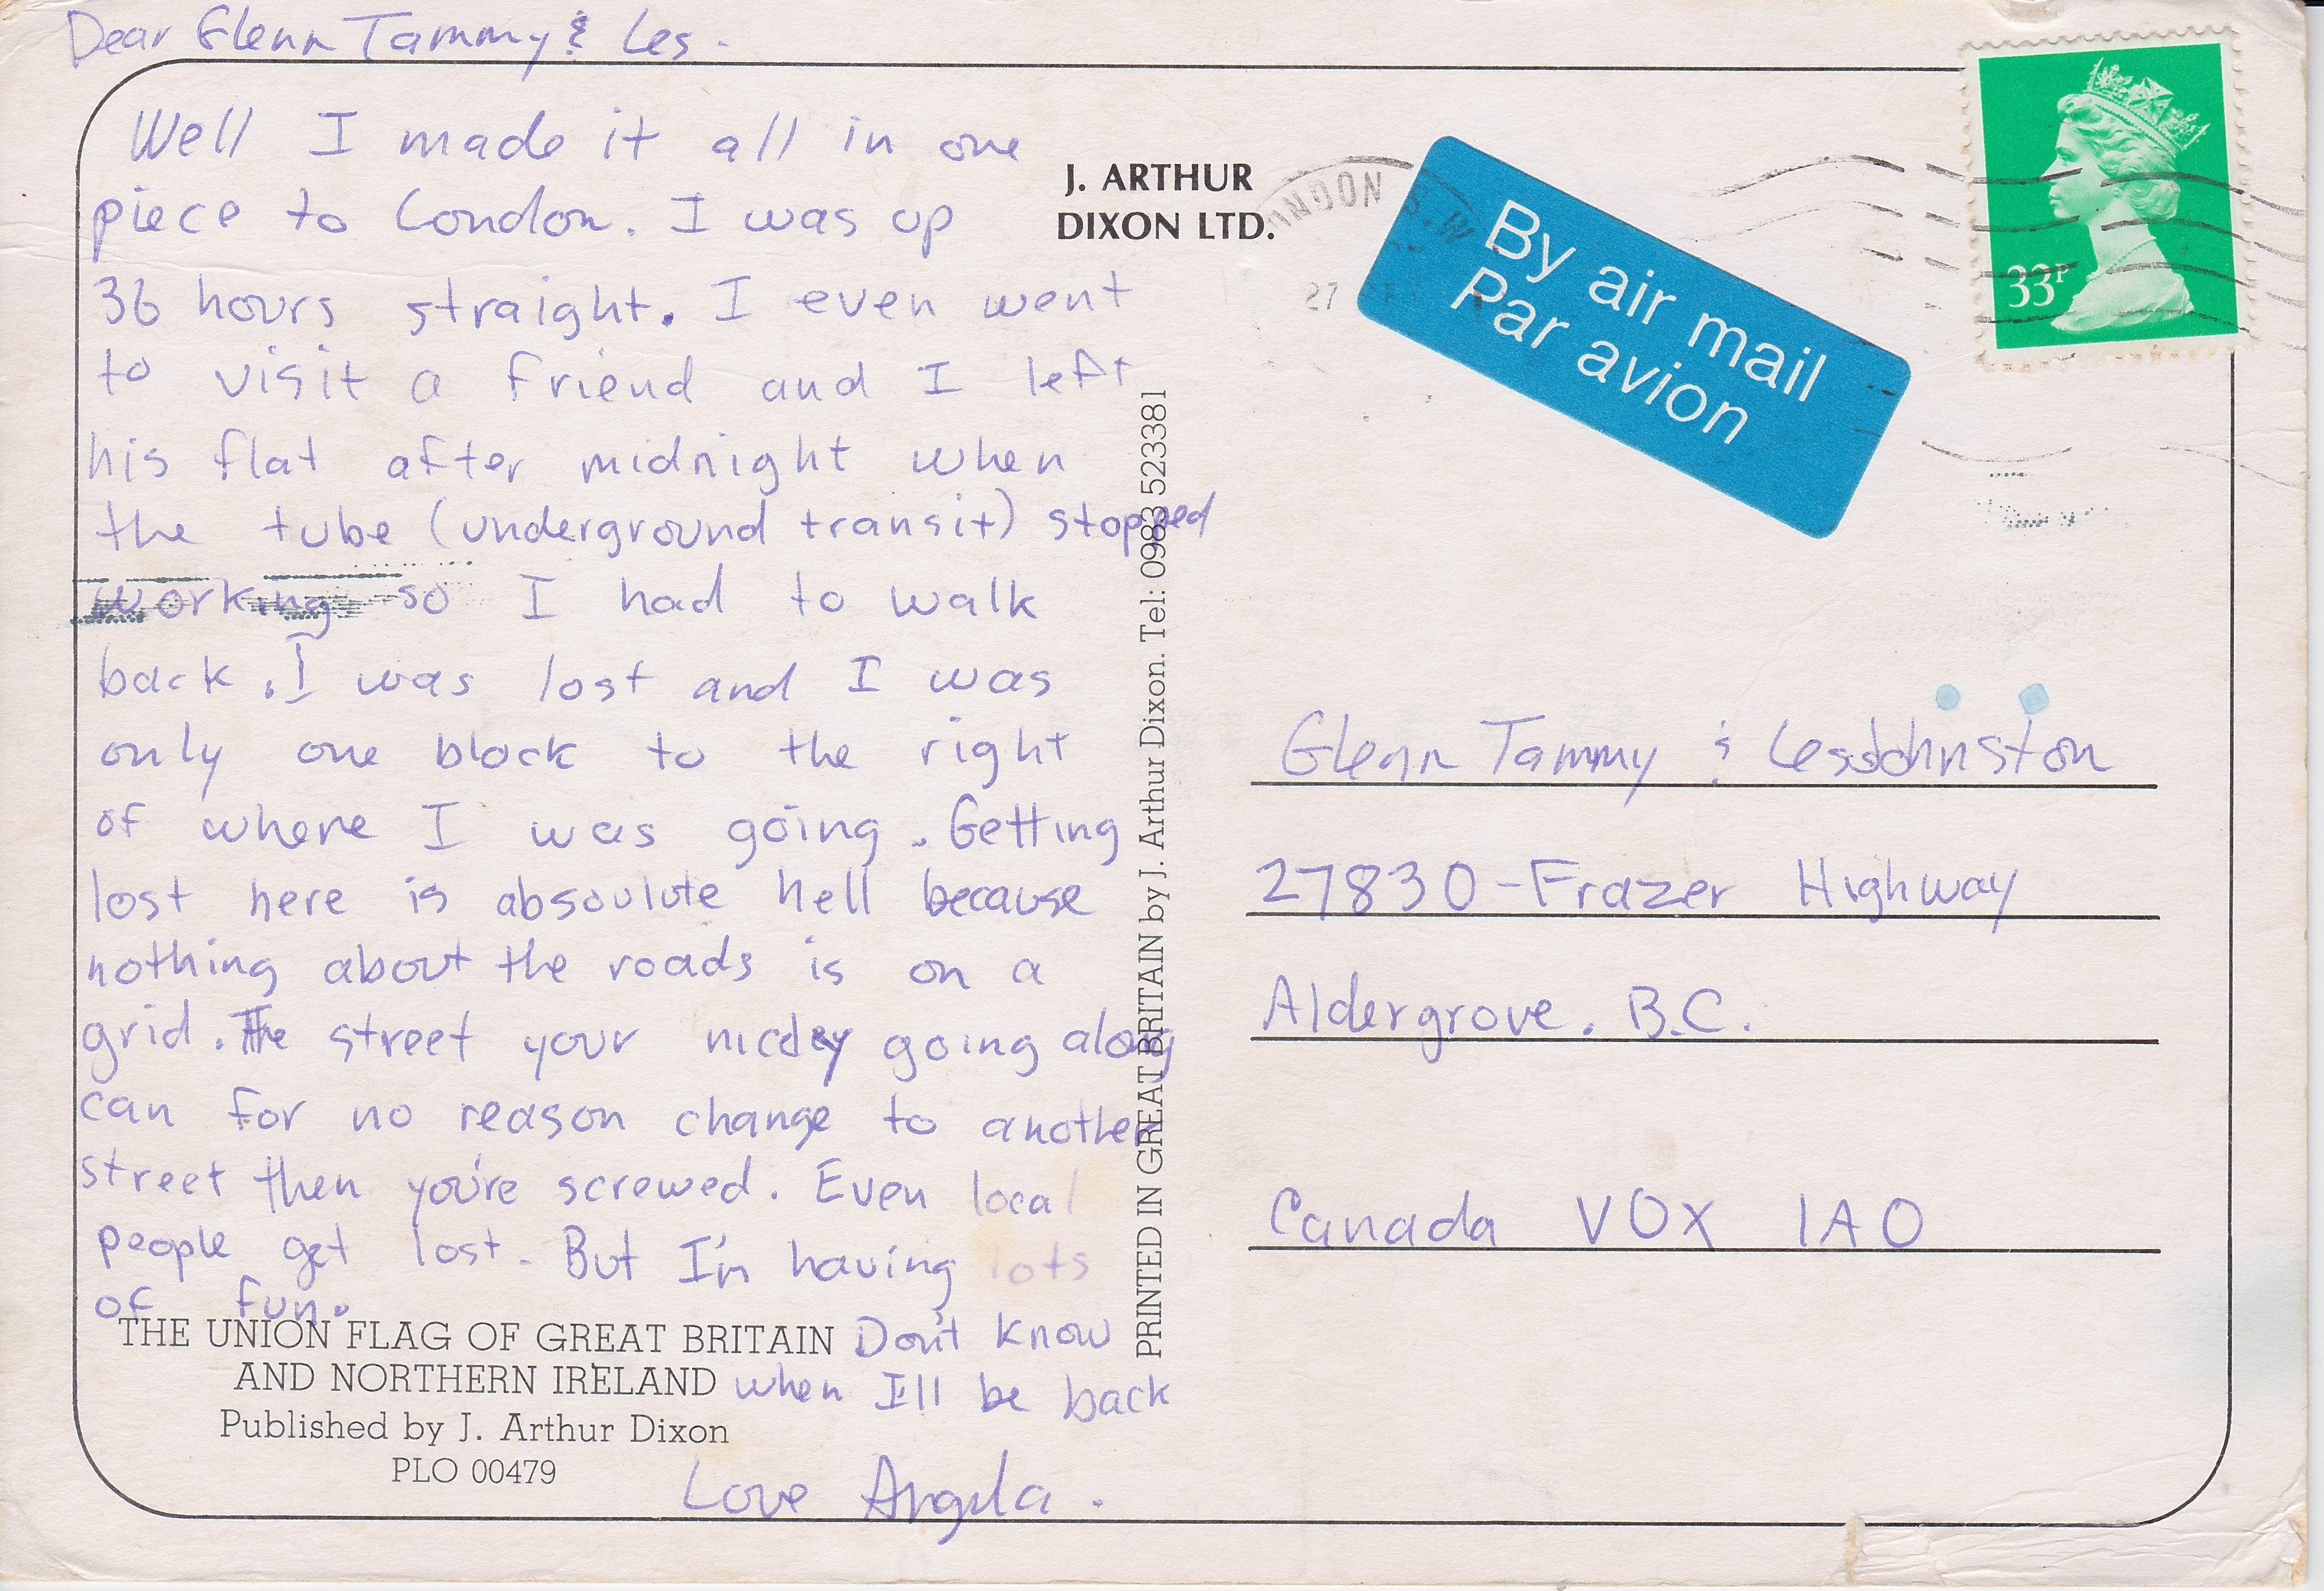 Dear Glenn Tammy & Les.
Well I made it all in one
piece to London. I was up
36 hours straight. I even went
to visit a friend and I left
his flat after midnight when
the tube (underground transit) stopped
working so I had to walk
back. I was lost and I was
only one block to the right
of where I was going. Getting
lost here is absoulute hell because
nothing about the roads is on a
grid. The street your going along
can for no reason change to another
street then you're screwed. Even local
people get lost. But I'm having lots
of fun.
Don't know
when I'll be back
Love Angela.
THE UNION FLAG OF GREAT BRITAIN
AND NORTHERN IRELAND
Published by J. Arthur Dixon
PLO 00479
J. ARTHUR
DIXON LTD.
PRINTED IN GREAT BRITAIN by J. Arthur Dixon. Tel: 0983 523381
LONDON S.W
27
By air mail
Par avion
33P
Glenn Tammy & Les Johnston
27830-Frazer Highway
Aldergrove. B.C.
Canada V0X 1A0